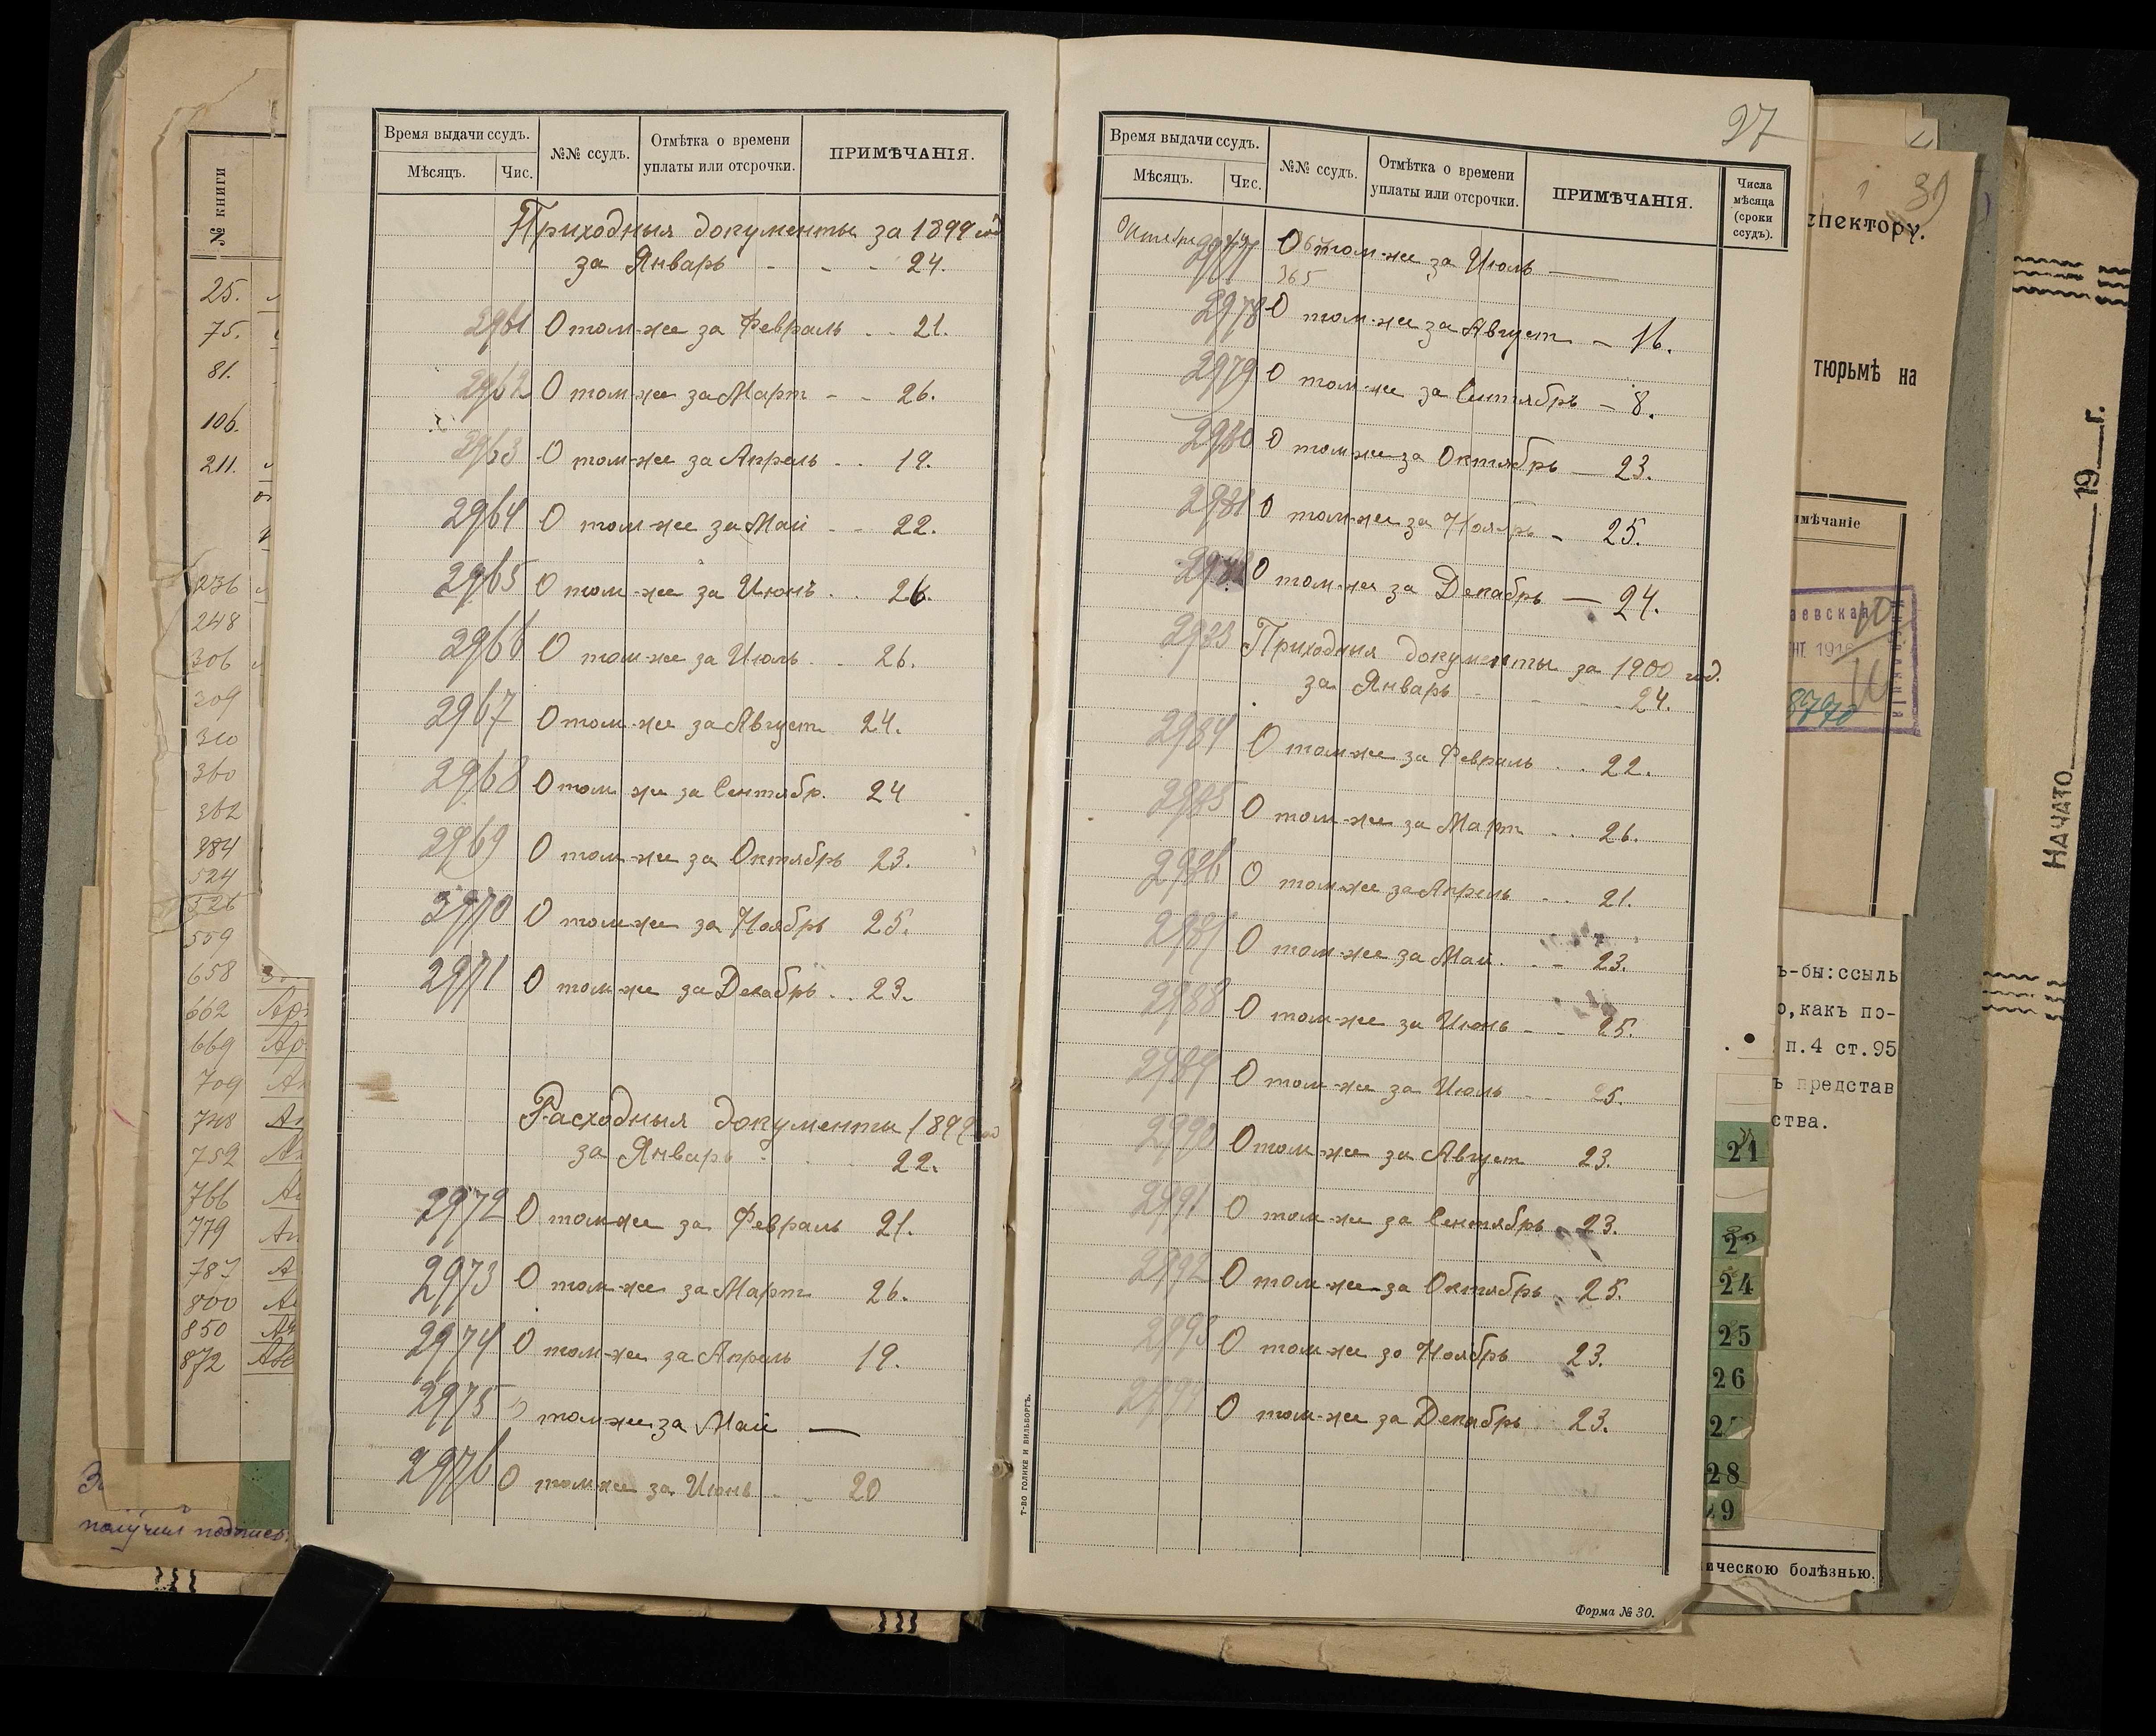 № книги
25.
75.
81.
106.
211.
236
248
306
309
310
360
362
384
524
526
559
658
662
669
709
748
752
766
779
787
800
850
872
получил подпись
Время выдачи ссудъ.
Мѣсяцъ.
Чис.
№№ ссудъ.
Отмѣтка о времени
уплаты или отсрочки.
ПРИМѢЧАНІЯ.
Приходныя документы за 1899 год
за Январь - - - 24.
2961 О том-же за Февраль . . 21.
2962 О том-же за Март - - 26.
2963 О том-же за Апрель . . 19.
2964 О том-же за Май - - 22.
2965 О том-же за Июнь . . 26.
2966 О том-же за Июль . . 26.
2967 О том-же за Август 24.
2968 О том же за Сентябр. 24
2969 О том-же за Октябрь 23.
2970 О том-же за Ноябрь 25.
2971 О том-же за Декабрь . . 23.
Расходныя документы 1899 год
за Январь - . . 22.
2972 О том-же за Февраль 21.
2973 О том-же за Март 26.
2974 О том-же за Апрель 19.
2975 О том-же за Май —
2976 О том-же за Июнь . . 20
97
Время выдачи ссудъ.
Мѣсяцъ.
Чис.
№№ ссудъ.
Отмѣтка о времени
уплаты или отсрочки.
ПРИМѢЧАНІЯ.
Числа
мѣсяца
(сроки
ссудъ).
2977 О том-же за Июль —
365
2978 О том-же за Август - 16.
2979 О том-же за Сентябрь - 8.
2980 О том-же за Октябрь — 23.
2981 О том-же за Ноябрь - 25.
2982 О том-же за Декабрь — 24.
2983 Приходныя документы за 1900 год.
за Январь - - - - 24.
2984 О том-же за Февраль . . 22.
2985 О том-же за Март . . 26.
2986 О том-же за Апрель . . 21.
2987 О том-же за Май . . - 23.
2988 О том-же за Июнь - - 25.
2989 О том-же за Июль - - 25.
2990 О том-же за Август 23.
2991 О том-же за Сентябрь 23.
2992 О том-же за Октябрь 25.
2993 О том-же зо Ноябрь 23.
2994 О том-же за Декабрь 23.
т-во голике и вильборгъ.
Форма № 30.
39
спектору.
тюрьмѣ на
имѣчаніе
аевская
8770
ъ-бы:ссыль
о,какъ по-
п.4 ст.95
ъ представ
ства.
21
24
25
26
28
ическою болѣзнью.
НАЧАТО 19 г.